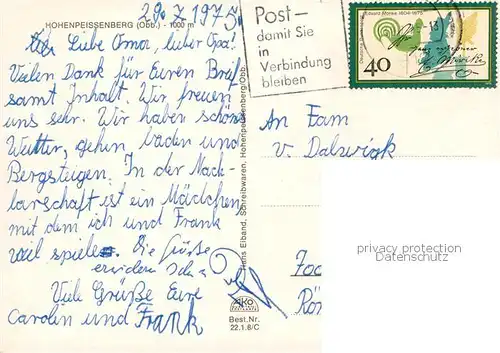 29. 7. 1975
HOHENPEISSENBERG (Obb.) - 1000 m
Liebe Oma, lieber Opa!
Vielen Dank für Euren Brief
samt Inhalt. Wir freuen
uns sehr. Wir haben schönes
Wetter, gehen baden und
Bergsteigen. In der Nach-
barschaft ist ein Mädchen,
mit dem ich und Frank
viel spiele. Die Grüße
Viele Grüße Eure
Carolin und Frank
Hans Elband, Schreibwaren, Hohenpeissenberg/Obb.
AKO
Best.Nr.
22.1.8/C
Post-
damit Sie
in
Verbindung
bleiben
Eduard Mörike 1804-1875
40
An Fam
v. Dalwigk
privacy protection
Datenschutz